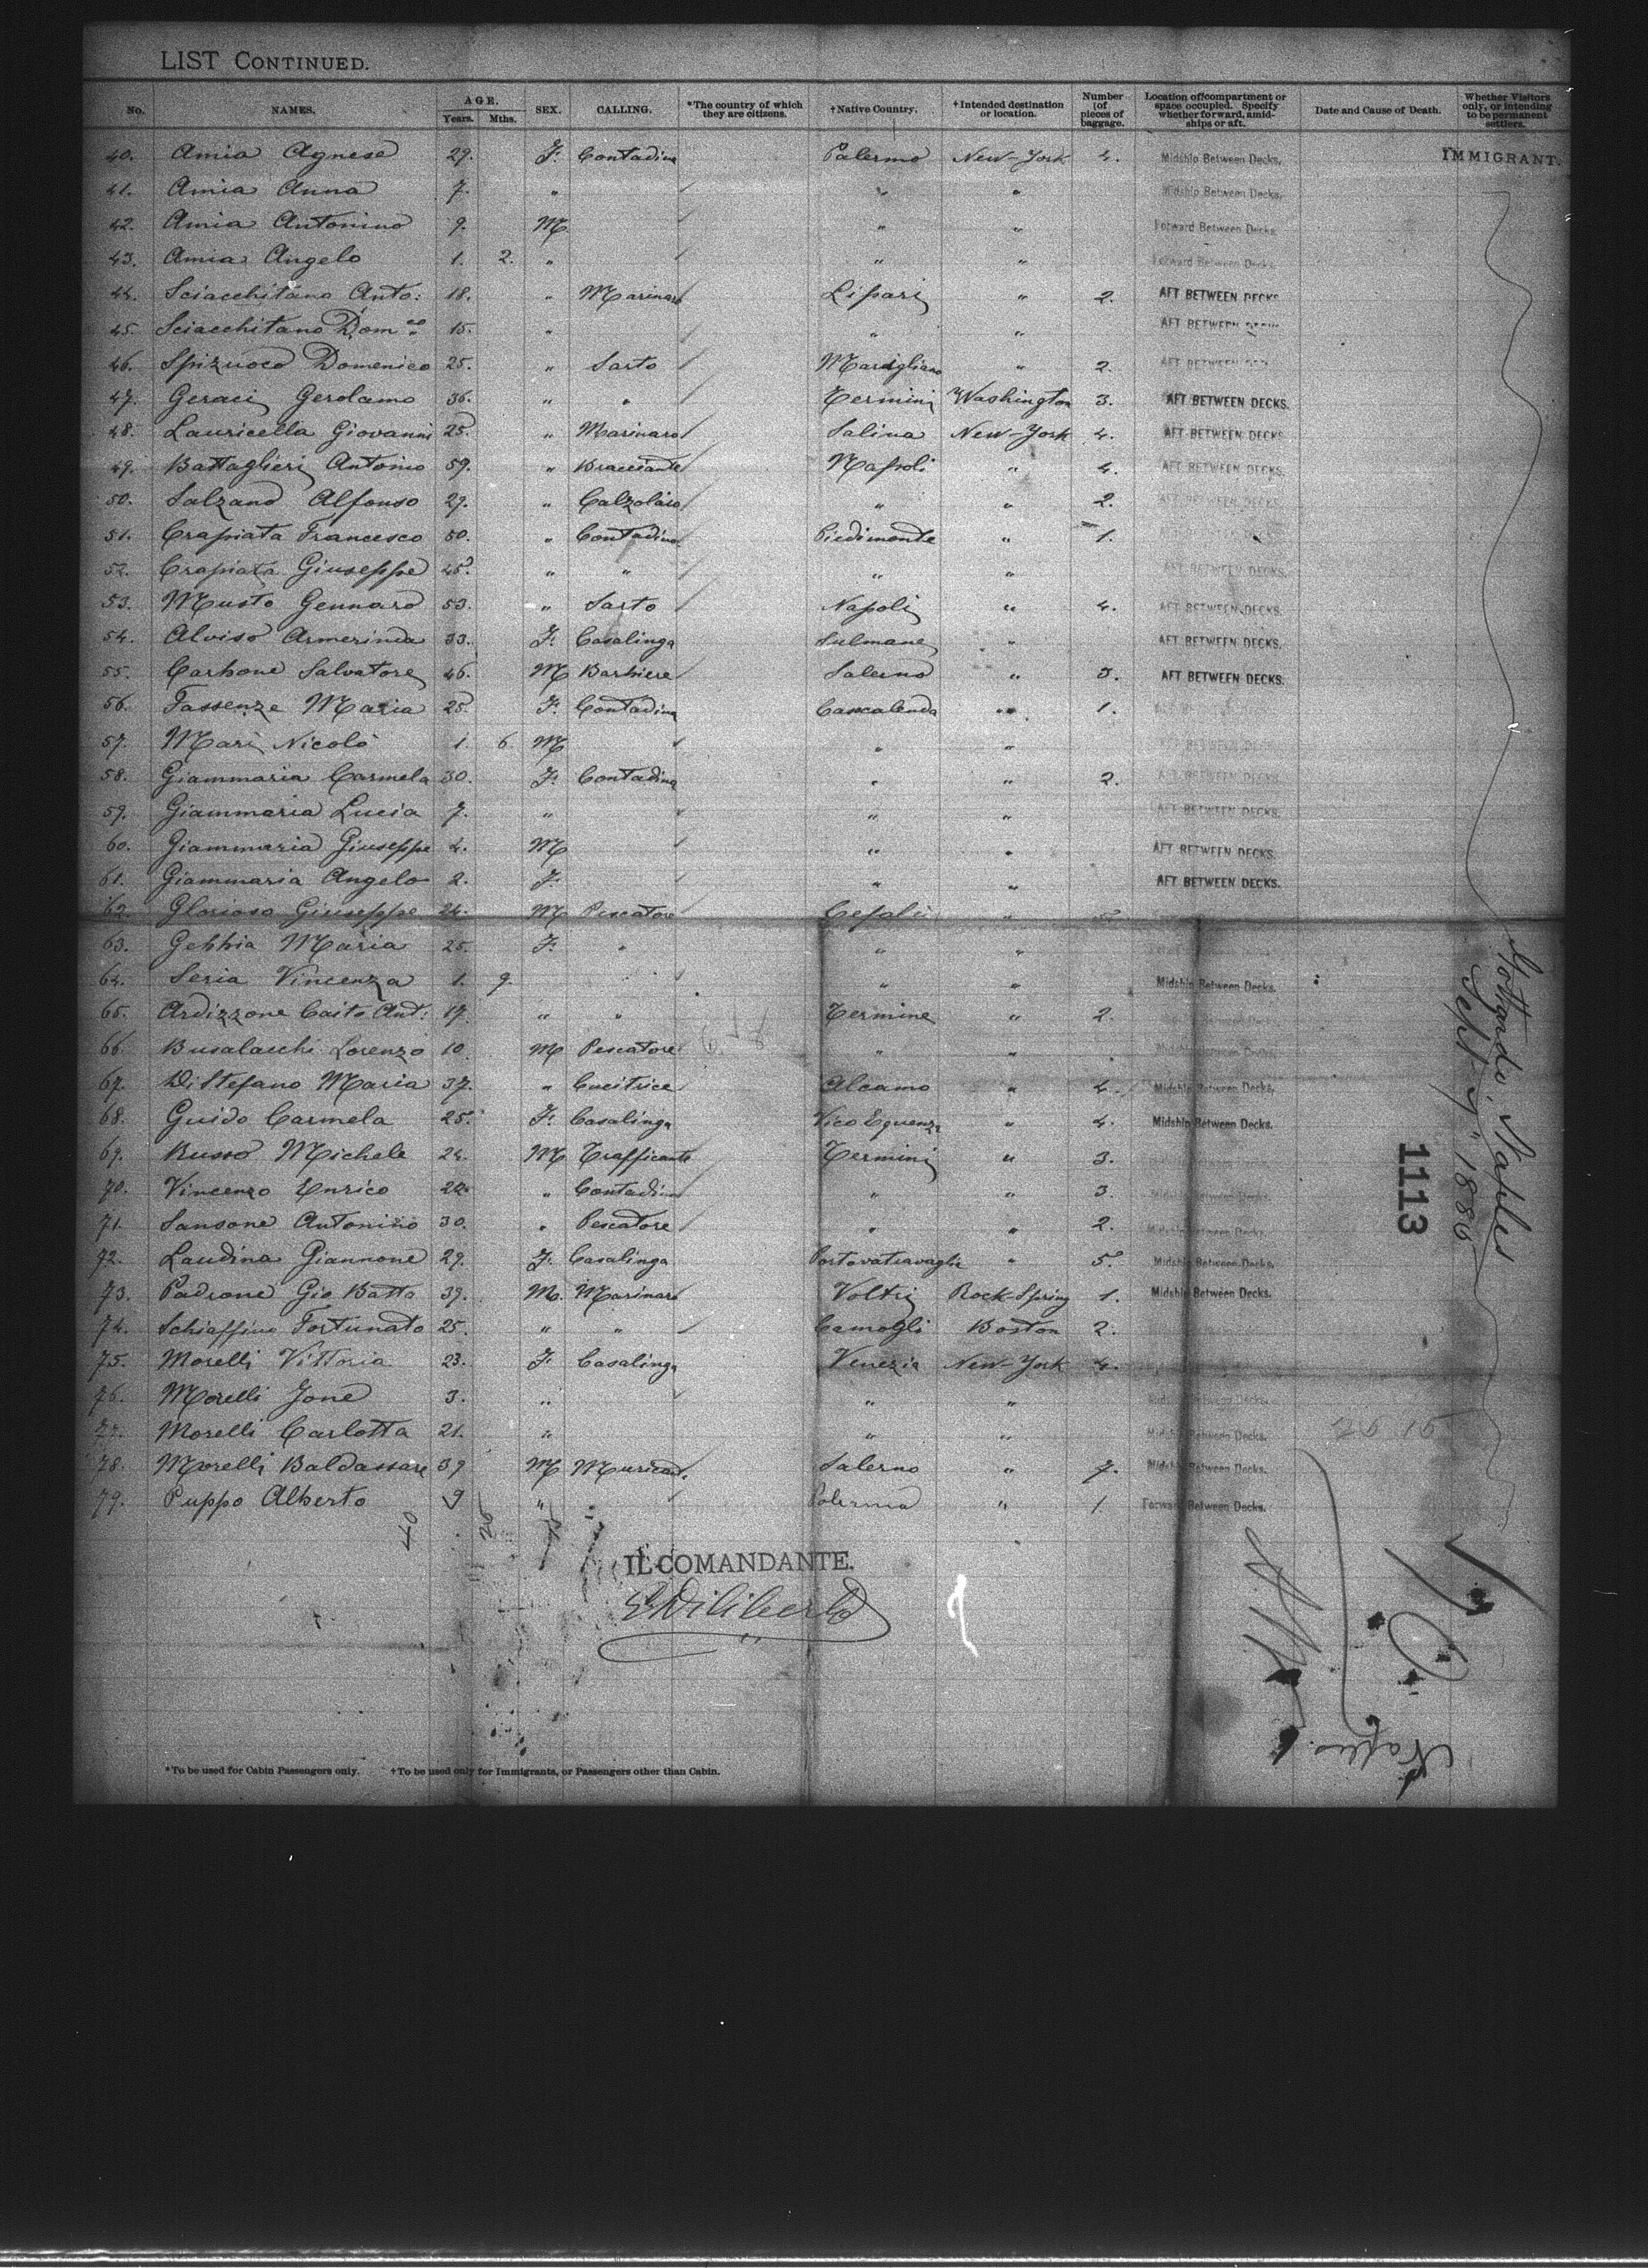 LIST CONTINUED.
No. NAMES. AGE. Years. Mths. SEX. CALLING. *The country of which they are citizens. †Native Country. †Intended destination or location. Number of pieces of baggage. Location of compartment or space occupied. Specify whether forward, amidships or aft. Date and Cause of Death. Whether Visitors only, or intending to be permanent settlers.
40. Amia Agnese 29. F. Contadina Palermo New-York 4. Midship Between Decks. IMMIGRANT.
41. Amia Anna 7. " " " Midship Between Decks.
42. Amia Antonino 9. M " " Forward Between Decks.
43. Amia Angelo 1. 2. " " " Forward Between Decks.
44. Sciacchitano Anto: 18. " Marinaro Lipari " 2. AFT BETWEEN DECKS
45. Sciacchitano Dom.co 15. " " " AFT BETWEEN
46. Spizuoco Domenico 25. " Sarto Marigliano " 2. AFT BETWEEN
47. Geraci Gerolamo 36. " " Termini Washington 3. AFT BETWEEN DECKS.
48. Lauricella Giovanni 25. " Marinaro Salina New-York 4. AFT BETWEEN DECKS
49. Battaglieri Antonio 59. " Bracciante Napoli " 4. AFT BETWEEN DECKS.
50. Salzano Alfonso 29. " Calzolaio " " 2.
51. Crapiata Francesco 50. " Contadino Piedimonte " 1.
52. Crapiata Giuseppe 45. " " " " AFT BETWEEN DECKS.
53. Musto Gennaro 53. " Sarto Napoli " 4. AFT BETWEEN DECKS.
54. Alviso Armerinda 33. F. Casalinga Sulmane " AFT BETWEEN DECKS.
55. Carbone Salvatore 46. M Barbiere Salerno " 3. AFT BETWEEN DECKS.
56. Fassenze Maria 25. F. Contadina Cascalenda " 1.
57. Mari Nicolò 1. 6 M " "
58. Giammaria Carmela 30. F. Contadina " " 2.
59. Giammaria Lucia 7. " " " AFT BETWEEN DECKS.
60. Giammaria Giuseppe 4. M " " AFT BETWEEN DECKS.
61. Giammaria Angelo 2. F. " " AFT BETWEEN DECKS.
62. Glorioso Giuseppe 24. M Pescatore Cefalù "
63. Gebbia Maria 25. F. " " "
64. Seria Vincenza 1. 9. " " Midship Between Decks.
65. Ardizzone Caito Ant: 17. " " Termine " 2.
66. Busalacchi Lorenzo 10. M Pescatore " "
67. Di Stefano Maria 37. " Cucitrice Alcamo " 4. Midship Between Decks.
68. Guido Carmela 25. F. Casalinga Vico Equenze " 4. Midship Between Decks.
69. Russo Michele 24. M Trafficante Termini " 3.
70. Vincenzo Enrico 22. " Contadino " " 3.
71. Sansone Antonino 30. " Pescatore " " 2.
72. Laudina Giannone 29. F. Casalinga Portovatravaglia " 5. Midship Between Decks.
73. Padrone Gio Batta 39. M. Marinaro Voltri Rock-Spring 1. Midship Between Decks.
74. Schiaffino Fortunato 25. " " Camogli Boston 2.
75. Morelli Vittoria 23. F. Casalinga Venezia New-York 4.
76. Morelli Jone 3. " " "
77. Morelli Carlotta 21. " " " Midship Between Decks.
78. Morelli Baldassare 39 M Musicant. Salerno " 7. Midship Between Decks.
79. Puppo Alberto 9 " Palermo " 1. Forward Between Decks.
Gottardo, Naples
Sept. 9" 1886
1113
26 15
40
IL COMANDANTE.
Diliberto
Naples.
*To be used for Cabin Passengers only. †To be used only for Immigrants, or Passengers other than Cabin.